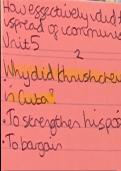 How effectively did t
spread of communi
Unit 5
2
Why did Khrushchev
in Cuba?
• To strengthen his pos
• To bargain